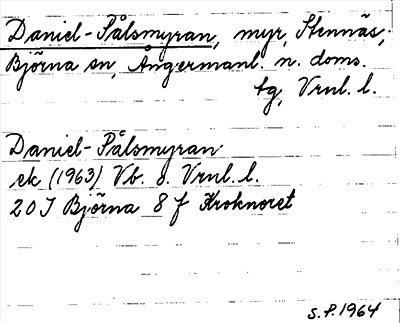 Daniel-Pålsmyran, myr, Stennäs,
Björna sn, Ångermanl. n. doms.
tg, Vrnl. l.
Daniel-Pålsmyran
ek (1963) Vb. o. Vrnl. l.
20J Björna 8f Kroknoret
S.P. 1964